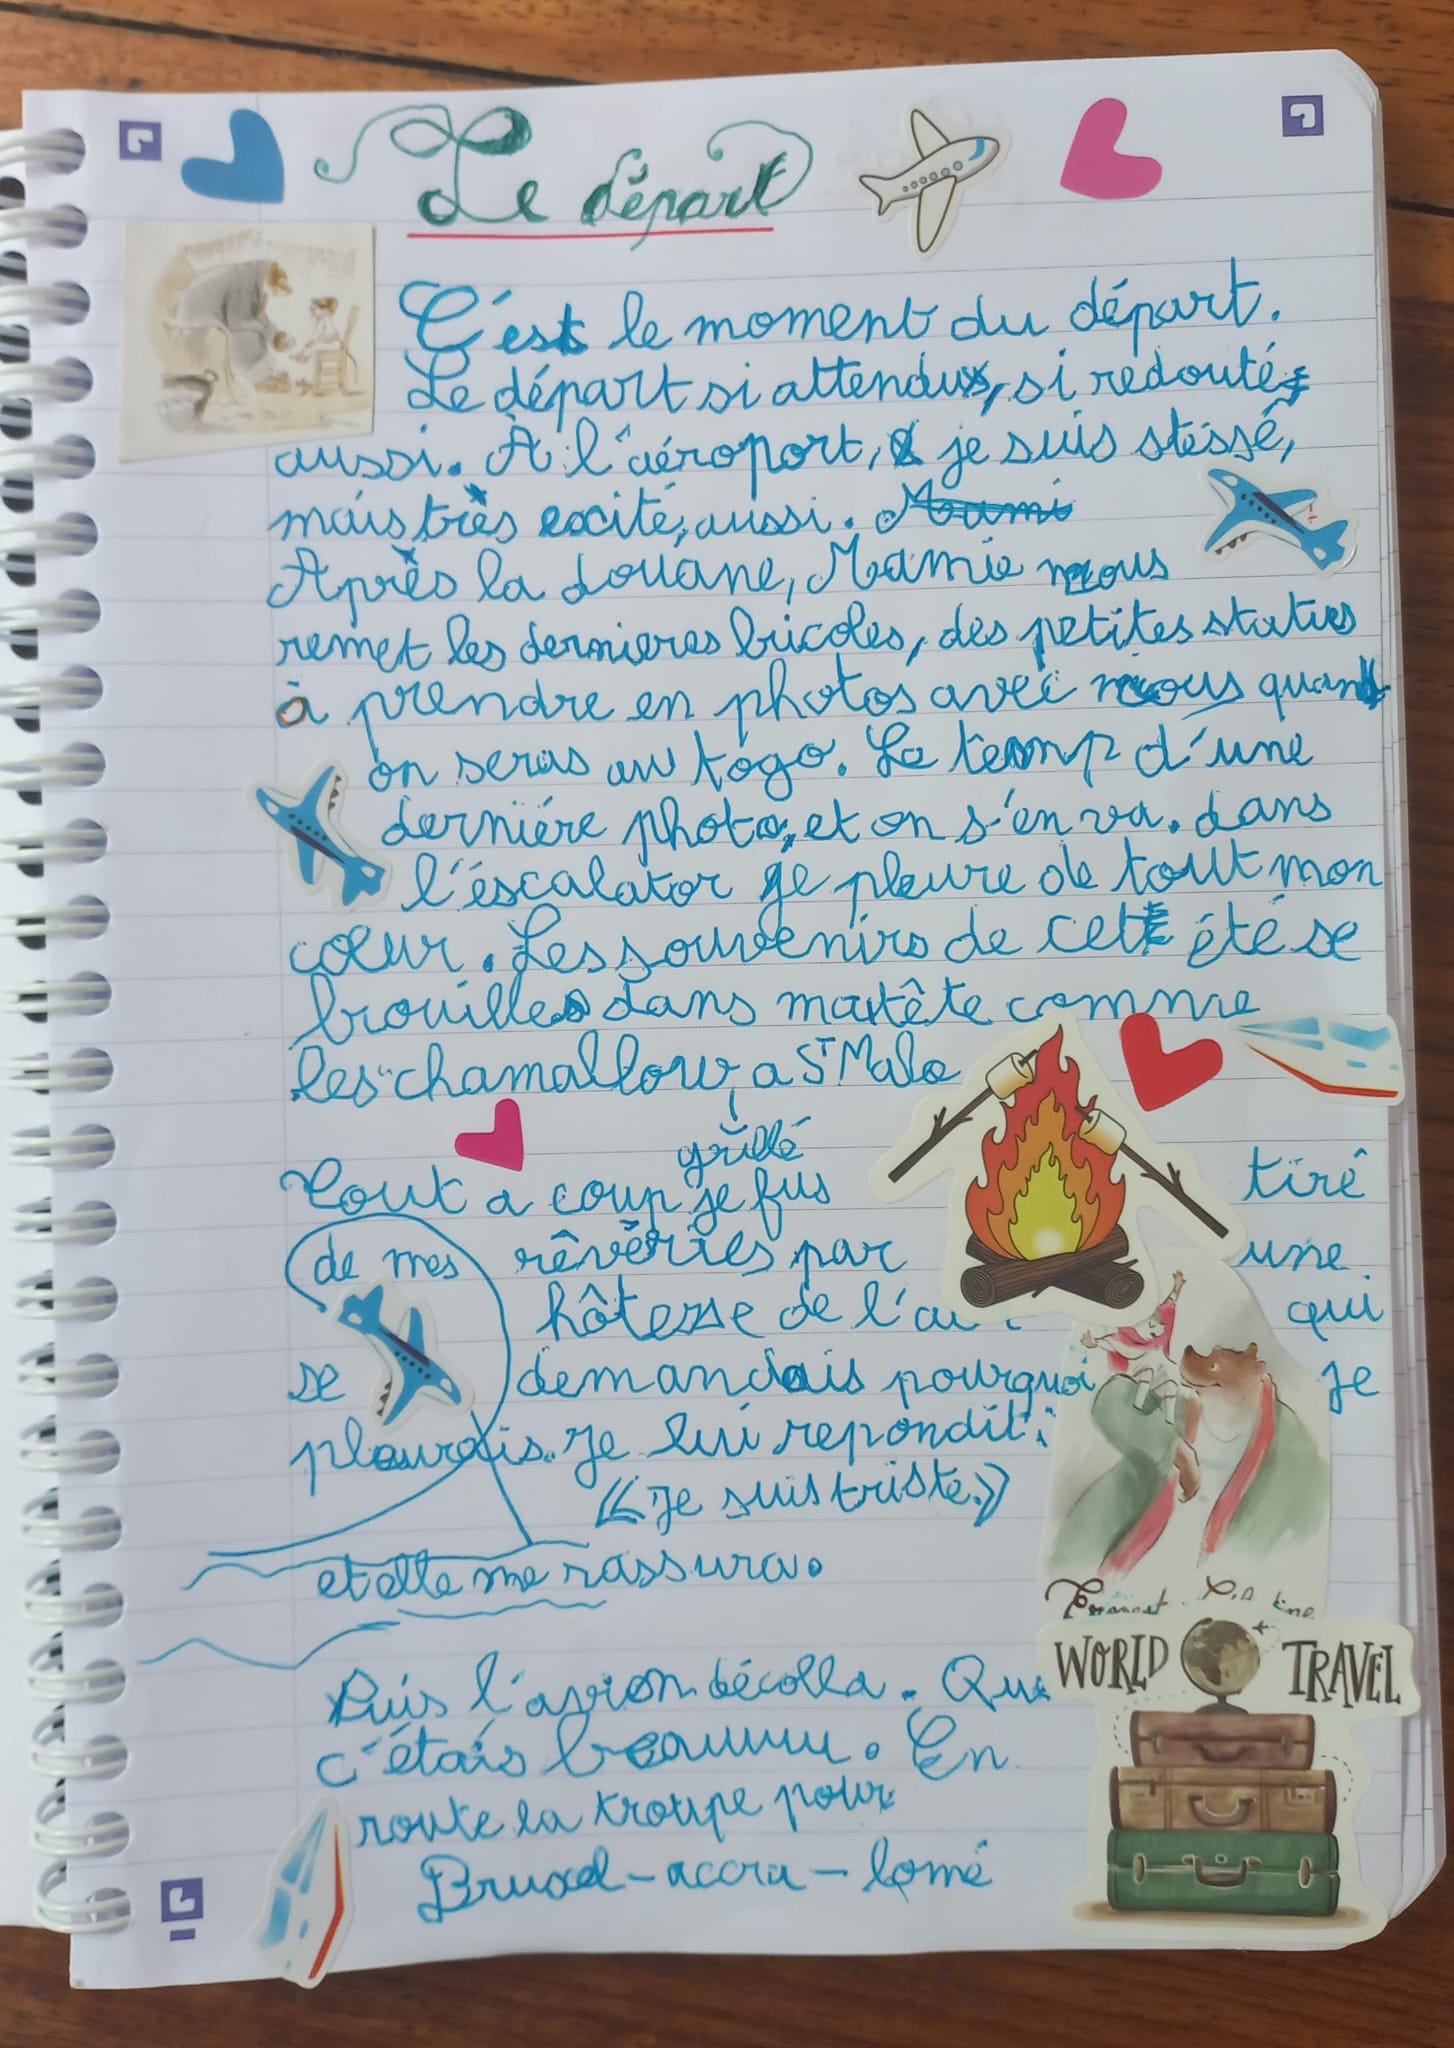 Le départ
C'est le moment du départ.
Le départ si attendu, si redouté
aussi. À l'aéroport, je suis stéssé,
mais très excité, aussi. Mami
Après la douane, Mamie nous
remet les dernieres bricoles, des petites statues
à prendre en photos avec nous quand
on seras au togo. Le temp d'une
derniére photo, et on s'en va. dans
l'éscalator je pleure de tout mon
cœur. Les souvenirs de cet été se
brouilles dans ma tête comme
les chamallow a St Malo
grillé
Tout a coup je fus tiré
de mes rêvêries par une
hôtesse de l'air qui
se demandais pourquoi je
pleurais. Je lui repondit:
«Je suis triste.»
et elle me rassura.
Puis l'avion décolla. Que
c'étais beauuuu. En
route la troupe pour
Bruxel - accra - lomé
Ernest
WORLD TRAVEL